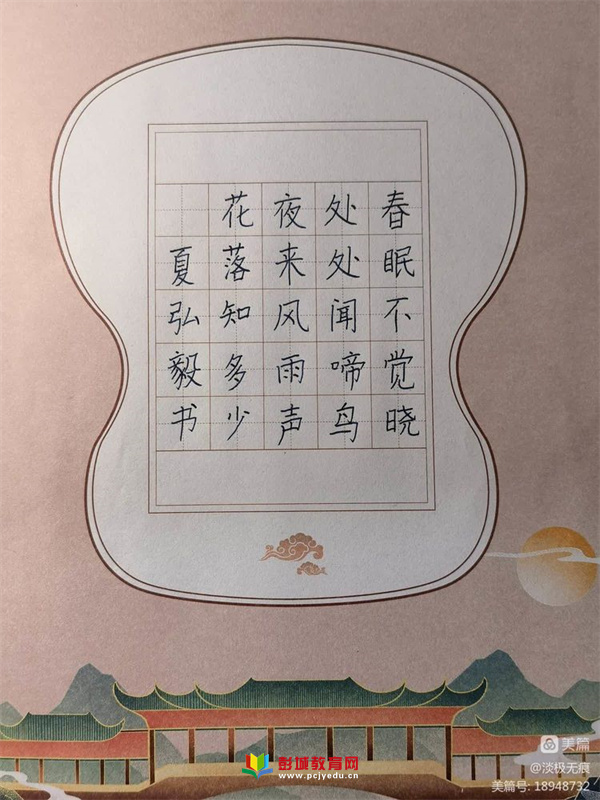 春眠不觉晓
处处闻啼鸟
夜来风雨声
花落知多少
夏弘毅书
美篇
@淡极无痕
美篇号: 18948732
彭城教育网
www.pcjyedu.cn